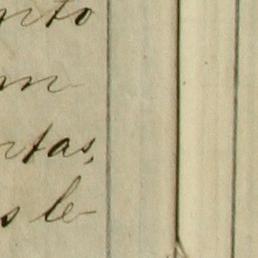 nto
m
ntas,
s le-